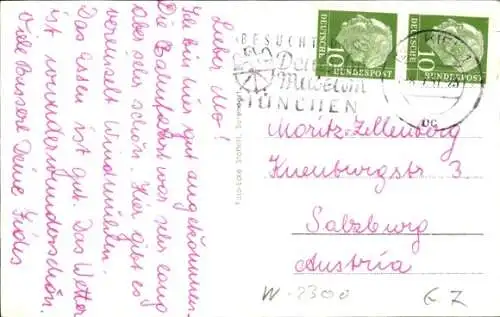 Lieber Mo!
Ich bin hier gut angekommen.
Die Bahnfahrt war sehr lang
aber sehr schön. Hier gibt es
vereinzelt Windmühlen.
Das Essen ist gut. Das Wetter
ist wunderwunderschön.
Viele Bussere Deine
BESUCHT
Deutsche
Museum
MÜNCHEN
DEUTSCHE BUNDESPOST
10
DEUTSCHE BUNDESPOST
10
Moritz Zellenberg
Kuenburgstr 3
Salzburg
Austria
W-2300
€ 7